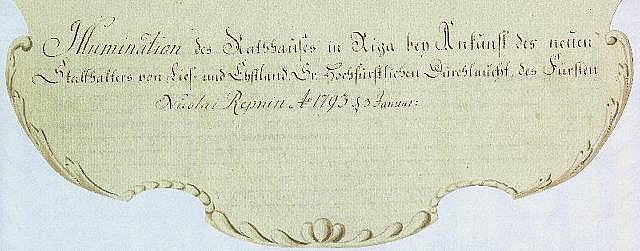 Illumination des Rathhauses in Riga bey Ankunft des neuen
Statthalters von Lief und Ehstland Sr. Hochfürstlichen Durchlaucht, des Fürsten
Nicolai Repnin Aº 1793 Januar: